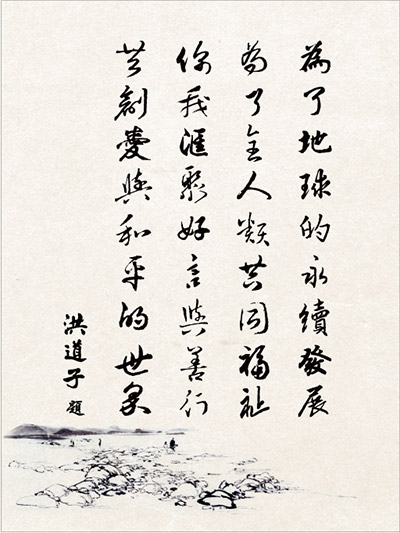 為了地球的永續發展
為了全人類共同福祉
你我匯聚好言與善行
共創愛與和平的世界
洪道子 題